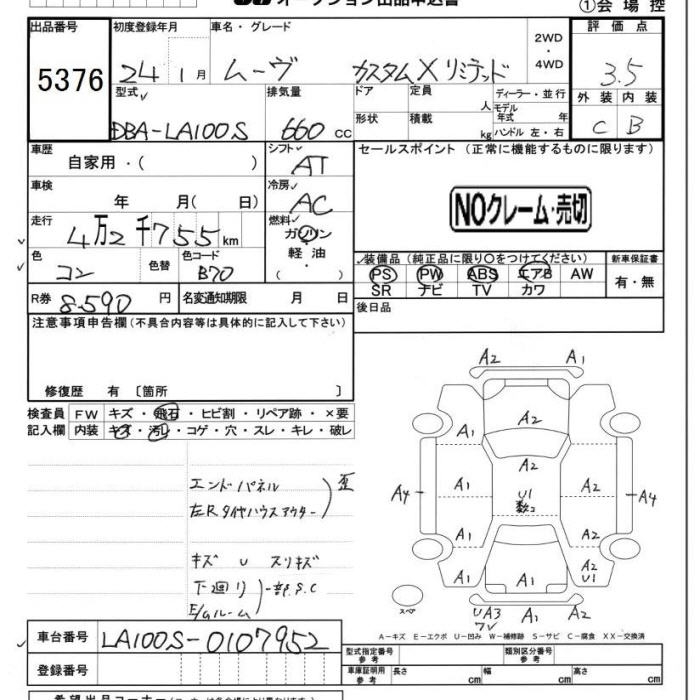 オークション出品申込書
①会場控
出品番号 初度登録年月 車名・グレード 2WD・4WD 評価点
5376 24 1月 ムーヴ カスタムXリミテッド 3.5
型式 排気量 ドア 定員 人 ディーラー・並行 外装 内装
モデル年式 年
DBA-LA100S 660cc 形状 積載 kg ハンドル 左・右 C B
車歴 シフト セールスポイント (正常に機能するものに限ります)
自家用・( ) AT
車検 冷房
年 月( 日) AC NOクレーム・売切
走行 燃料
4万2千755km ガソリン
軽油
( )
色 色替 色コード 装備品(純正品に限り○をつけてください) 新車保証書
コン B70 PS PW ABS エアB AW 有・無
SR ナビ TV カワ
R券 8.590円 名変通知期限 月 日 後日品
注意事項申告欄(不具合内容等は具体的に記入して下さい)
修復歴 有 〔箇所 〕
検査員 FW キズ・飛石・ヒビ割・リペア跡・×要
記入欄 内装 キズ・汚レ・コゲ・穴・スレ・キレ・破レ
A2 A1
A2
A1 A2
A2
A4 A1 U1 A2 A4
数コ
A1 A2
A1 A1 A2
U1
スペア UA3 A1 A2
エンドパネル
左Rタイヤハウスアウター 歪
キズ U スリキズ
下廻リ 一部S.C
E/gルーム
A-キズ E-エクボ U-凹み W-補修跡 S-サビ C-腐食 XX-交換済
車台番号 LA100S-0107952
登録番号
型式指定番号 参考 類別区分番号 参考
車庫証明用 参考 長さ cm 幅 cm 高さ cm
希望出品コーナー